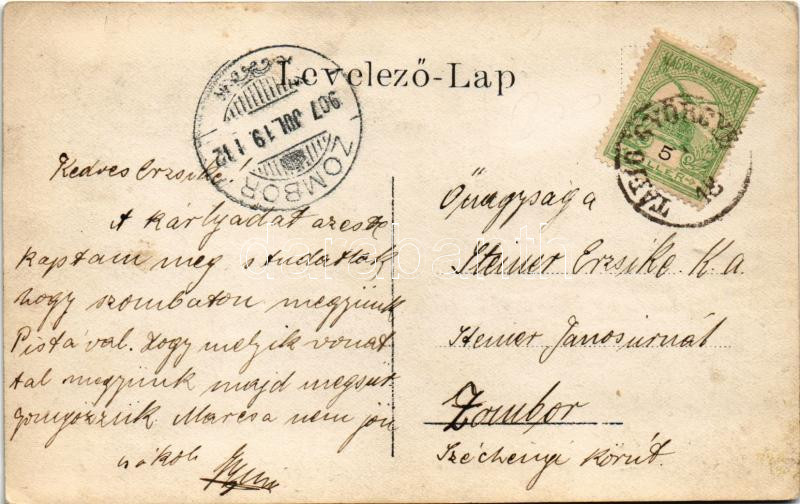 Levelező-Lap
907 JUL. 19
ZOMBOR
MAGYAR KIR. POSTA
5
Kedves Erzsike!
A kártyádat az este
kaptam meg s tudatlak
hogy szombaton megyünk
Pistával. Hogy melyik vonat
tal megyünk majd megsür
gönyözzük. Marcsa nem jön
csókol
Őnagysága
Steiner Erzsike K.a.
Steiner Jánosúrnál
Zombor
Széchenyi körút.